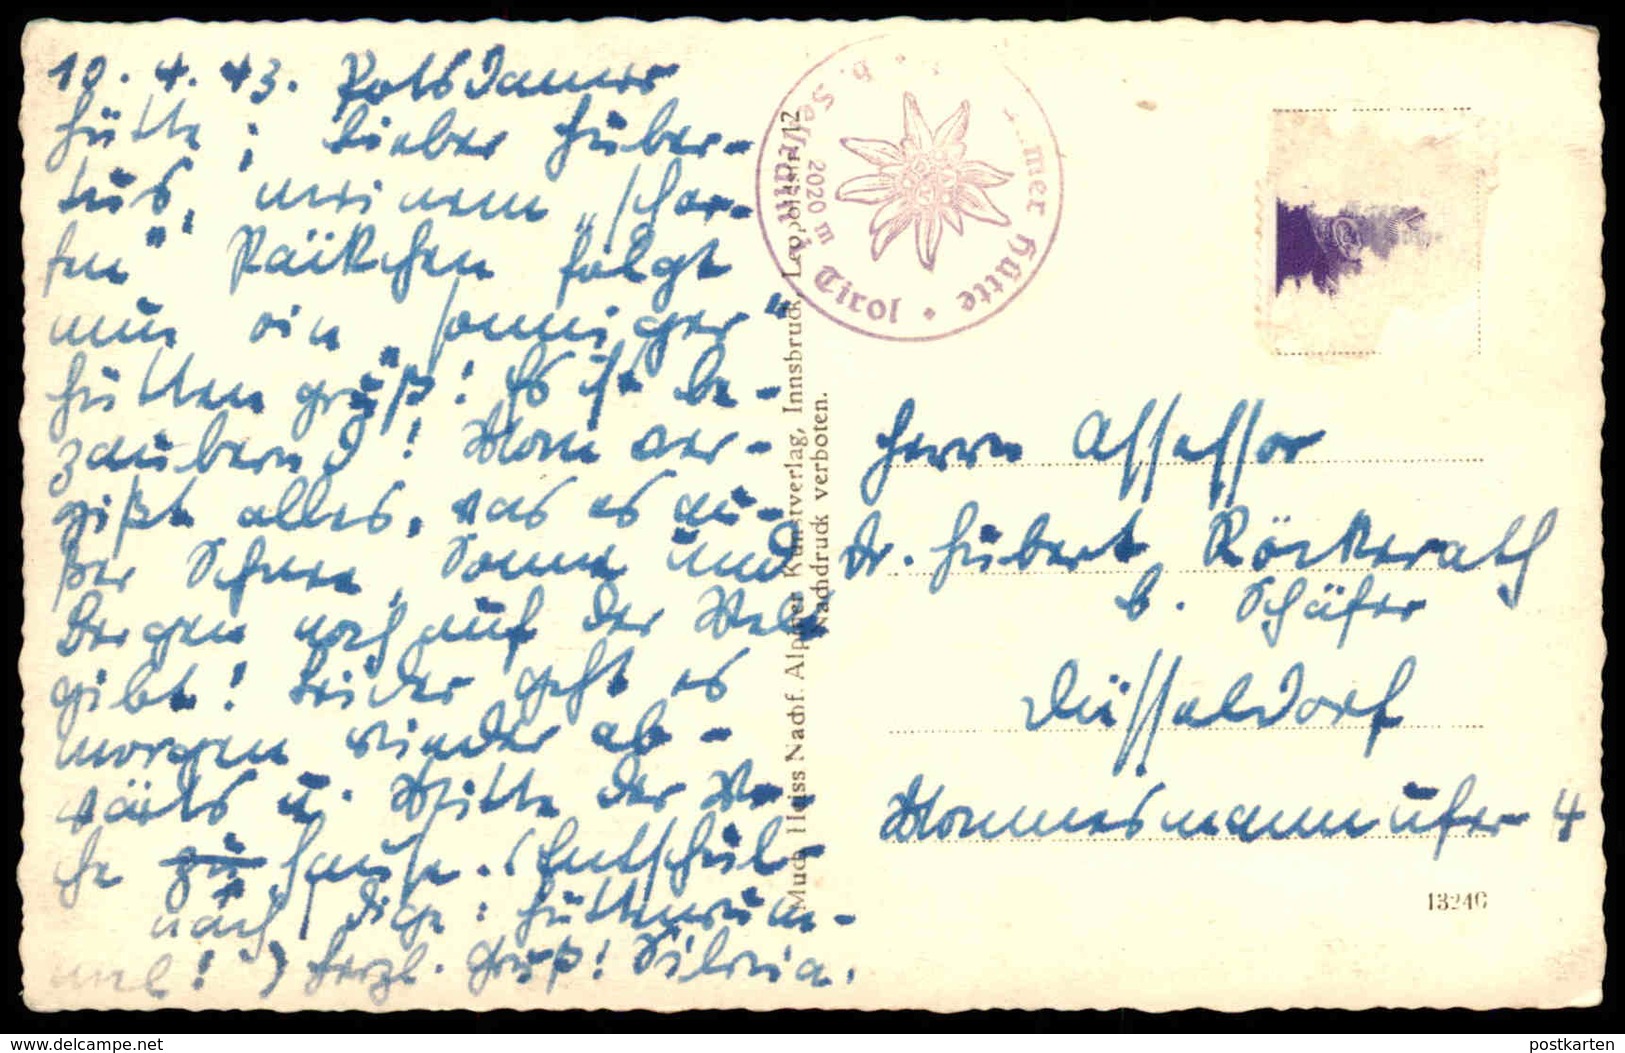 10. 4. 43. Potsdamer
Hütte; Lieber Huber-
tus, meinem „schar-
fen" Päckchen folgt
nun ein „sonniger"
Hüttengruß! Es ist be-
zaubernd! Man ver-
gißt alles, was es au-
ßer Schnee, Sonne und
Bergen noch auf der Welt
gibt! Leider geht es
morgen wieder ab-
wärts u. Mitte der Wo-
che zu hause. (Entschul-
nach
dige: Hüttenrum-
mel!) Herzl. Gruß! Silvia.
mer Hütte • Tirol
2020 m
Much Heiss Nachf. Alpiner Kunstverlag, Innsbruck, Leopoldstr. 12
Nachdruck verboten.
Herrn Assessor
Dr. Hubert Röckerath
b. Schäfer
Düsseldorf
Mannesmannufer 4
1324G
www.delcampe.net
postkarten